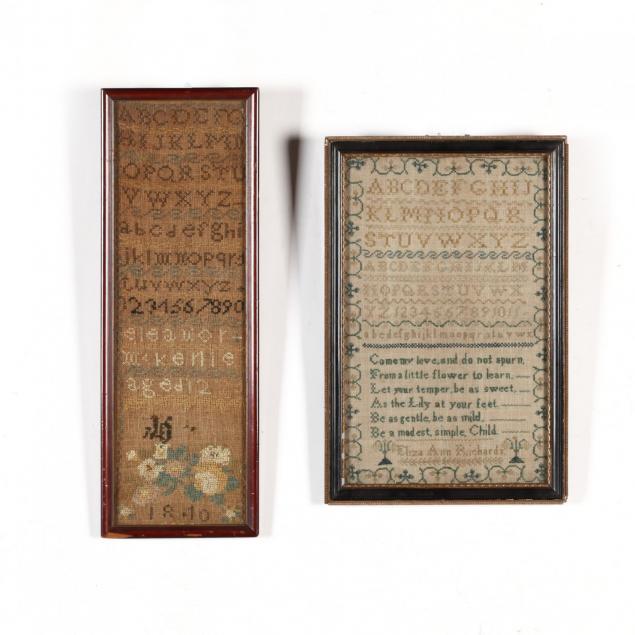 ABCDEFG
HIJKLMN
OPQRST
VWXYZ
abcdefghi
jklmnopqrs
tuvwxyz
1234567890
eleanor
mckenie
aged12
1840
ABCDEFGHIJ
KLMNOPQR
STUVWXYZ
ABCDEFGHIJKLM
NOPQRSTUVWX
YZ1234567891011
abcdefghijklmnopqrstuvwxyz
Come my love, and do not spurn,
From a little flower to learn,
Let your temper, be as sweet,
As the Lily at your feet
Be as gentle, be as mild,
Be a modest, simple, Child
Eliza Ann Richards